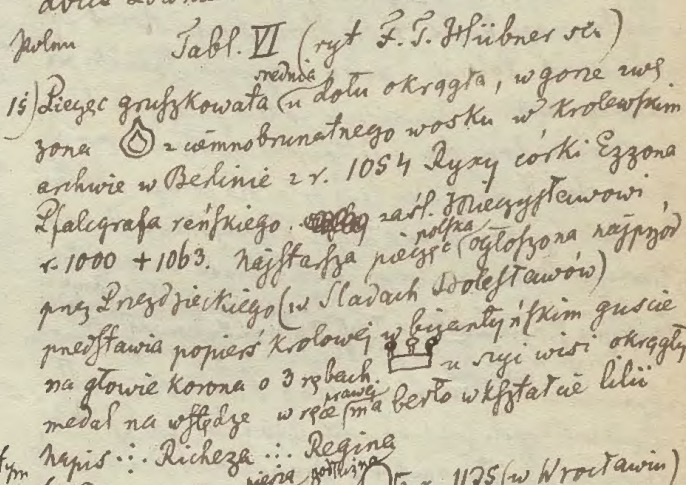 Polnu Tabl. VI (ryt F. T. Hübner sc.)
średnia
15) Pieczęć gruszkowata (u dołu okrągła, w gorze zwę
żona z ciemnobrunatnego wosku w Krolewskim
archwie w Berlinie z r. 1054 Ryxy córki Ezzona
Pfalcgrafa reńskiego. zaśl. Mieczysławowi,
polska
r. 1000 + 1063. Najstarsza pieczęć (ogłoszona najprzód
przez Przezdzieckiego (w Sladach Bolesławów)
przedstawia popierś Krolowej w bizantyńskim guscie
na głowie Korona o 3 rębach u szyi wisi okrągły
prawej
medal na wstędze w ręce (ma berło w kształcie lilii
tym napis ∴ Richeza ∴ Regina
1175 (w Wrocławiu)